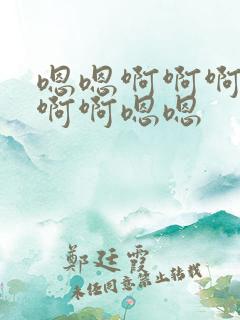 嗯嗯啊啊啊
啊啊嗯嗯
鄭廷霞
未经同意禁止转载